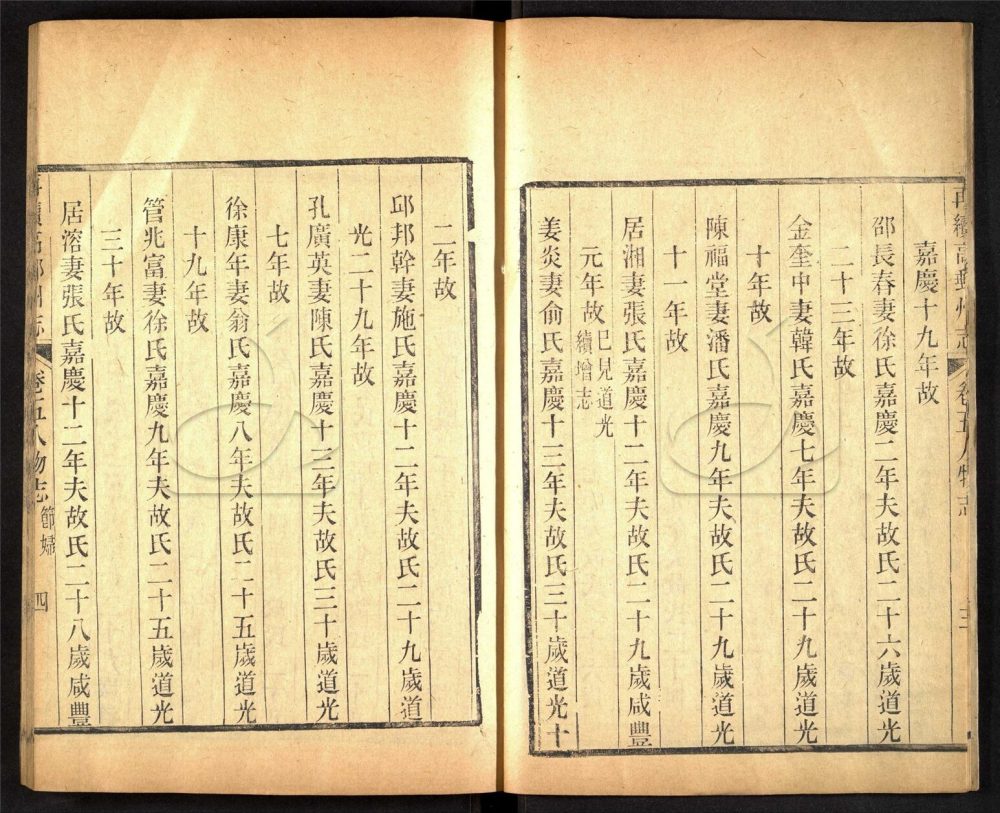 再續高郵州志 卷五人物志 三
嘉慶十九年故
邵長春妻徐氏嘉慶二年夫故氏二十六歲道光
二十三年故
金奎申妻韓氏嘉慶七年夫故氏二十九歲道光
十年故
陳福堂妻潘氏嘉慶九年夫故氏二十九歲道光
十一年故
居湘妻張氏嘉慶十二年夫故氏二十九歲咸豐
元年故 已見道光
續增志
姜炎妻俞氏嘉慶十三年夫故氏三十歲道光十
二年故
邱邦幹妻施氏嘉慶十二年夫故氏二十九歲道
光二十九年故
孔廣英妻陳氏嘉慶十三年夫故氏三十歲道光
七年故
徐康年妻翁氏嘉慶八年夫故氏二十五歲道光
十九年故
管兆富妻徐氏嘉慶九年夫故氏二十五歲道光
三十年故
居溶妻張氏嘉慶十二年夫故氏二十八歲咸豐
再續高郵州志 卷五人物志 節婦 四